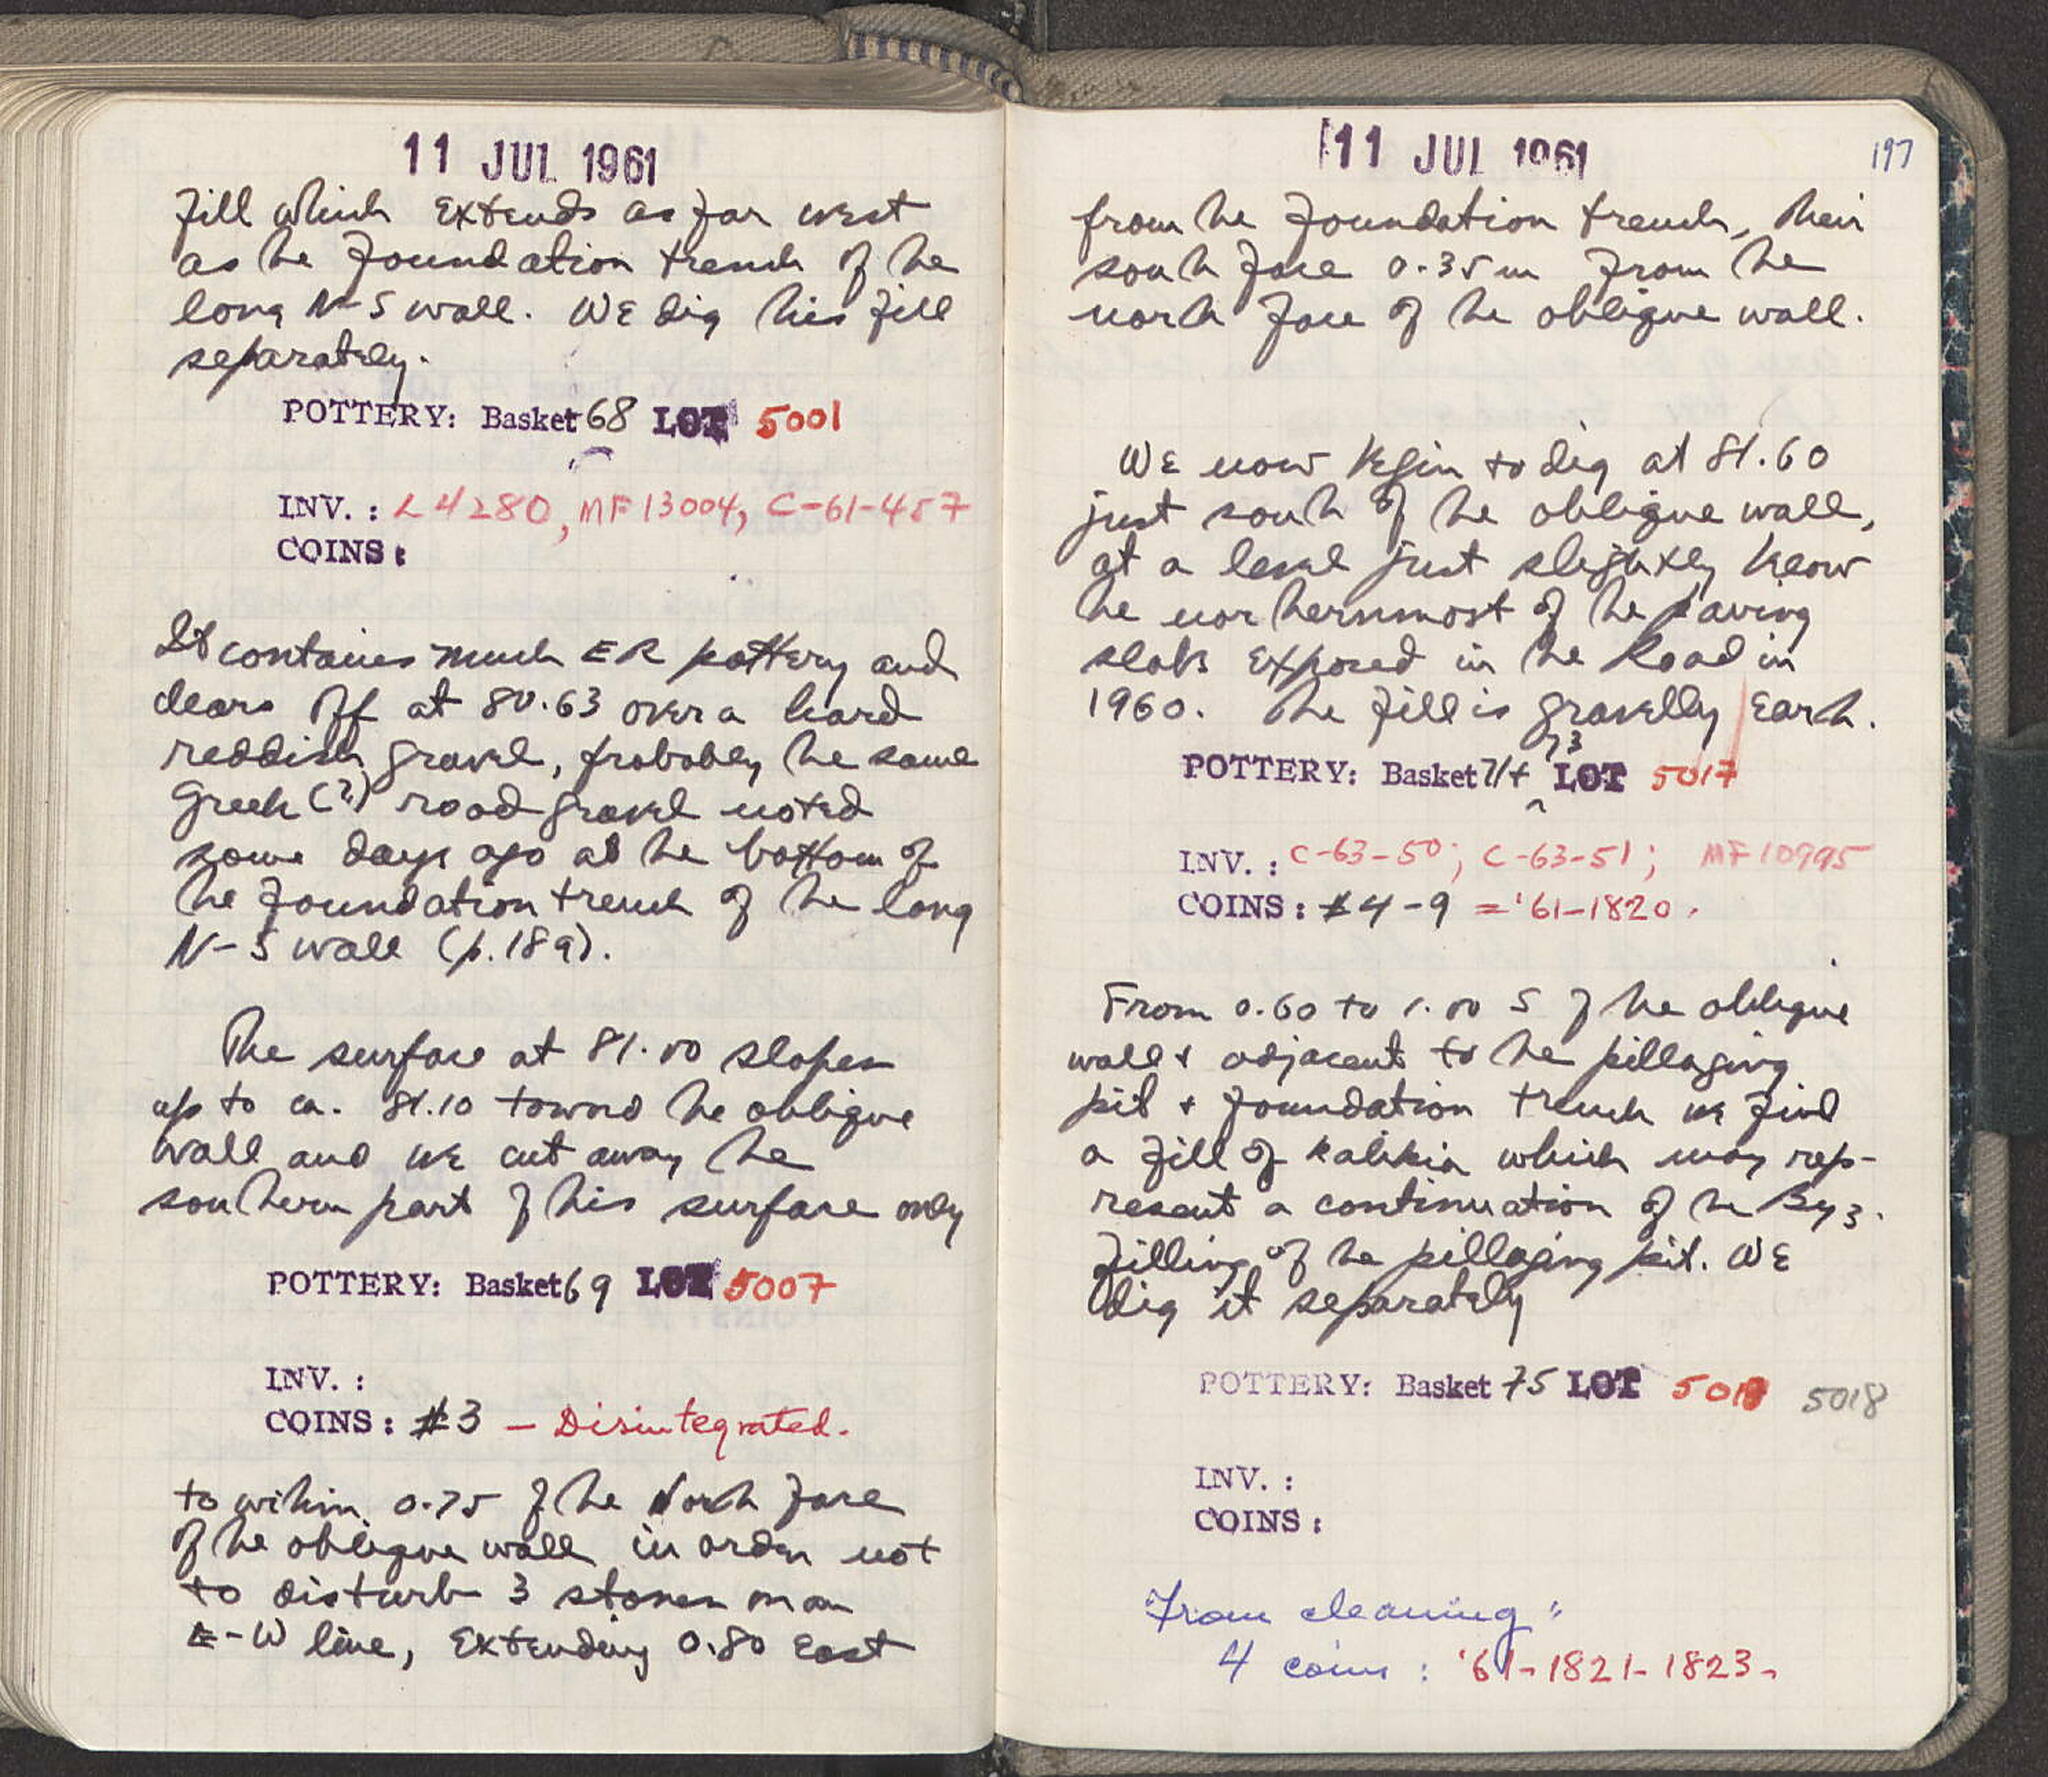 11 JUL 1961
fill which extends as far west
as the foundation trench of the
long N-S wall. We dig this fill
separately.
POTTERY: Basket 68 LOT 5001
INV.: L4280, MF13004, C-61-457
COINS:
It contains much ER pottery and
clears off at 80.63 over a hard
reddish gravel, probably the same
Greek (?) road gravel noted
some days ago at the bottom of
the foundation trench of the long
N-S wall (p. 189).
The surface at 81.00 slopes
up to ca. 81.10 toward the oblique
wall and we cut away the
southern part of this surface only
POTTERY: Basket 69 LOT 5007
INV.:
COINS: #3 - Disintegrated.
to within 0.75 of the North face
of the oblique wall in order not
to disturb 3 stones on an
E-W line, extending 0.80 East
11 JUL 1961
197
from the foundation trench, their
south face 0.35m from the
north face of the oblique wall.
We now begin to dig at 81.60
just south of the oblique wall,
at a level just slightly below
the northernmost of the paving
slabs exposed in the Road in
1960. The fill is gravelly earth.
POTTERY: Basket 71+73 LOT 5017
INV.: C-63-50; C-63-51; MF10995
COINS: #4-9 = '61-1820.
From 0.60 to 1.00 S of the oblique
wall + adjacent to the pillaging
pit + foundation trench we find
a fill of kalikia which may rep-
resent a continuation of the Byz.
filling of the pillaging pit. We
dig it separately
POTTERY: Basket 75 LOT 5018 5018
INV.:
COINS:
From cleaning:
4 coins: '61-1821-1823-